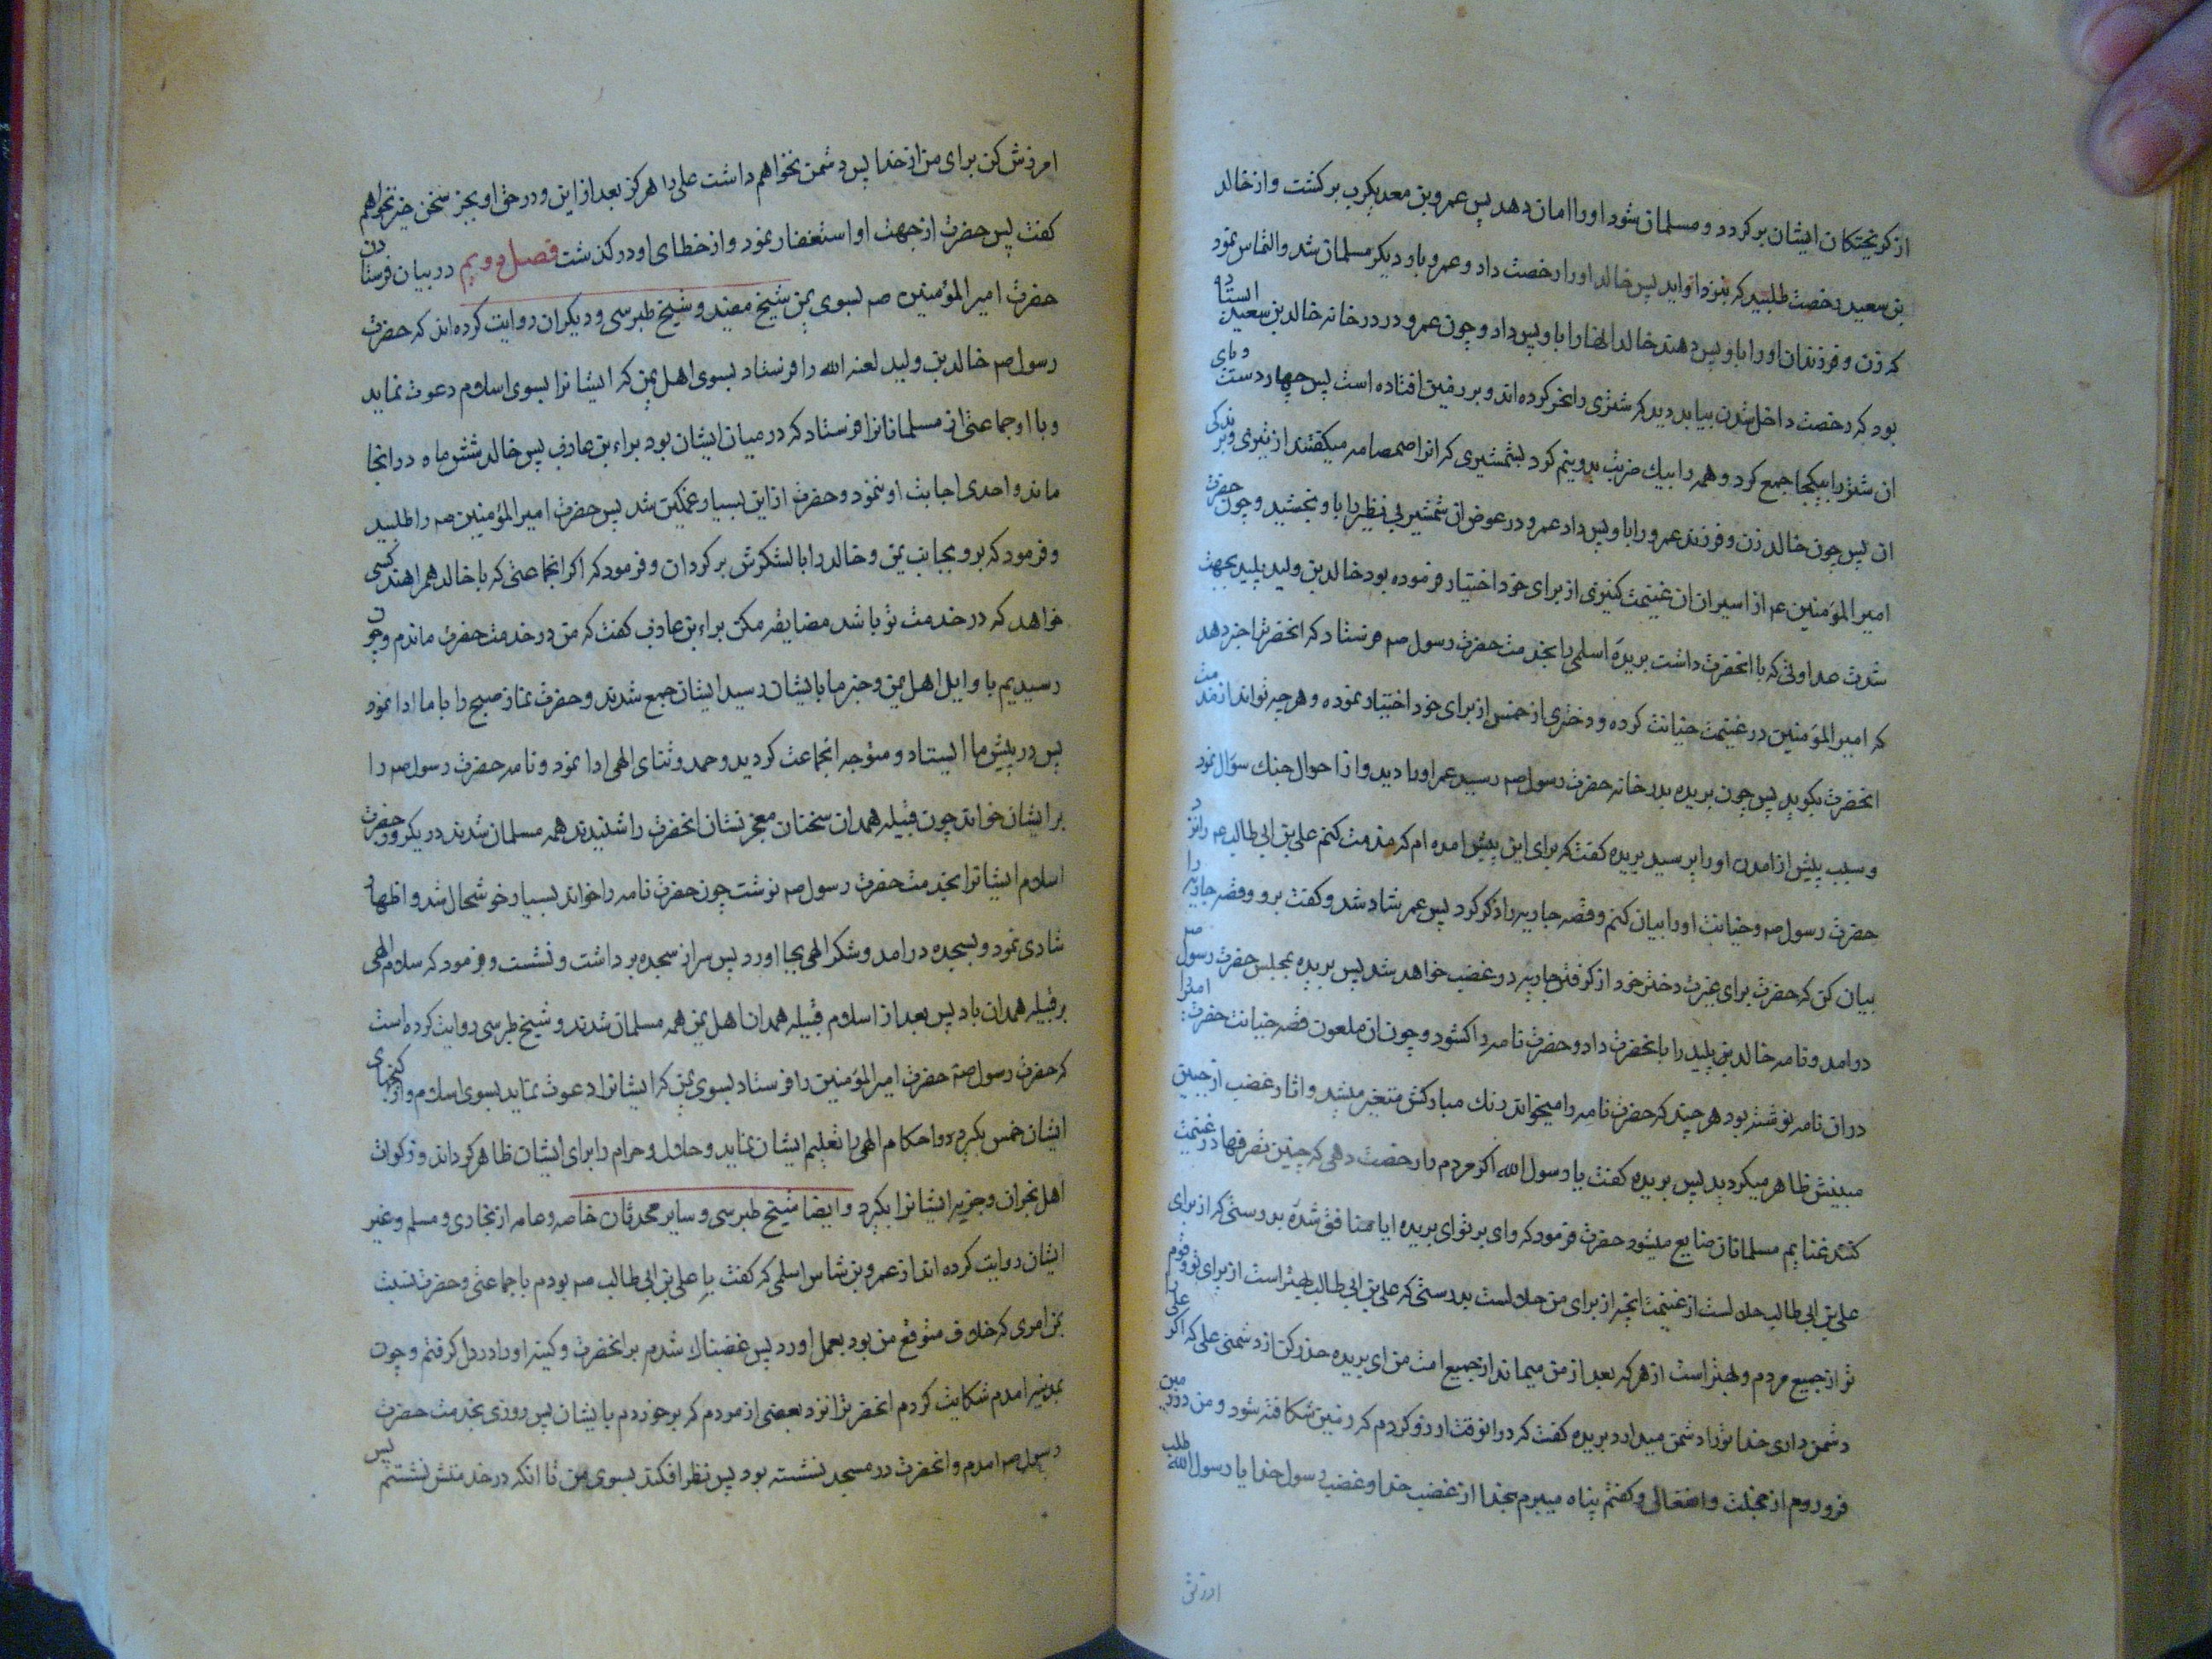 از گریختگان ایشان برگردد و مسلمان شود او را امان دهد پس عمرو بن معدیکرب برگشت و از خالد
بن سعید رخصت طلبید که بنزد او اید پس خالد او را رخصت داد و عمرو بار دیگر مسلمان شد و التماس نمود
که زن و فرزندان او را باو پس دهند خالد انها را باو پس داد و چون عمرو در در خانه خالد بن سعید ایستاده
بود که رخصت داخل شدن بیابد دید که شتری را نحر کرده اند و بر زمین افتاده است پس چهار دست و پای
ان شتر را بیکجا جمع کرد و همه را بیک ضربت بدو نیم کرد بشمشیری که انرا صمصامه میگفتند از تیزی و برندگی
ان پس چون خالد زن و فرزند عمرو را باو پس داد عمرو در عوض ان شمشیر بی نظیر را باو بخشید و چون حضرت
امیر المؤمنین عم از اسیران ان غنیمت کنیزی از برای خود اختیار فرموده بود خالد بن ولید پلید بجهت
شدت عداوتی که با انحضرت داشت بریده اسلمی را بخدمت حضرت رسول صم فرستاد که انحضرترا خبر دهد
که امیر المؤمنین در غنیمت خیانت کرده و دختری از خمس از برای خود اختیار نموده و هر چه تواند از مذمت
انحضرت بگوید پس چون بریده بدر خانه حضرت رسول صم رسید عمر او را دید و از احوال جنک سؤال نمود
و سبب پیش از امدن او را پرسید بریده گفت که برای این پیش امده ام که مذمت کنم علی بن ابی طالب عم را نزد
حضرت رسول صم و خیانت او را بیان کنم و قصه جاریه را ذکر کرد پس عمر شاد شد و گفت برو و قصه جاریه را
بیان کن که حضرت برای غیرت دختر خود از گرفتن جاریه در غضب خواهد شد پس بریده بمجلس حضرت رسول صم
درامد و نامه خالد بن پلید را بانحضرت داد و حضرت نامه را گشود و چون ان ملعون قصه خیانت حضرت امیر را
در ان نامه نوشته بود هر چند که حضرت نامه را میخواند رنك مبارکش متغیر میشد و اثار غضب از جبین
مبینش ظاهر میگردید پس بریده گفت یا رسول الله اگر مردم را رخصت دهی که چنین تصرفها در غنیمت
کنند غنایم مسلمانان ضایع میشود حضرت فرمود که وای بر تو ای بریده ایا منافق شدهٔ بدرستی که از برای
علی بن ابی طالب حلالست از غنیمت انچه از برای من حلالست بدرستی که علی بن ابی طالب بهتر است از برای تو و قوم
تو از جمیع مردم و بهتر است از هر که بعد از من میماند از جمیع امت من ای بریده حذر کن از دشمنی علی که اگر علی را
دشمن داری خدا تو را دشمن میدارد بریده گفت که در انوقت ارزو کردم که زمین شکافته شود و من در زمین
فرو روم از خجلت و انفعال و گفتم پناه میبرم بخدا از غضب خدا و غضب رسول خدا یا رسول الله طلب
امرزش کن برای من از خدا پس دشمن نخواهم داشت علی را هرگز بعد از این و در حق او بجز سخن خیر نخواهم
گفت پس حضرت از جهت او استغفار نمود و از خطای او در گذشت فصل دویم در بیان فرستادن
حضرت امیر المؤمنین صم بسوی یمن شیخ مفید و شیخ طبرسی و دیگران روایت کرده اند که حضرت
رسول صم خالد بن ولید لعنه الله را فرستاد بسوی اهل یمن که ایشانرا بسوی اسلام دعوت نماید
و با او جماعتی از مسلمانانرا فرستاد که در میان ایشان بود براء بن عازب پس خالد شش ماه در انجا
ماند و احدی اجابت او ننمود و حضرت از این بسیار غمگین شد پس حضرت امیر المؤمنین صم را طلبید
و فرمود که برو بجانب یمن و خالد را با لشکرش برگردان و فرمود که اگر انجماعتی که با خالد همراهند کسی
خواهد که در خدمت تو باشد مضایقه مکن براء بن عازب گفت که من در خدمت حضرت ماندم و چون
رسیدیم باوایل اهل یمن و خبر ما بایشان رسید ایشان جمع شدند و حضرت نماز صبح را با ما ادا نمود
پس در پیش ما ایستاد و متوجه انجماعت گردید و حمد و ثنای الهی ادا نمود و نامه حضرت رسول صم را
بر ایشان خواند چون قبیله همدان سخنان معجز نشان انحضرت را شنیدند همه مسلمان شدند در یکروز حضرت
اسلام ایشانرا بخدمت حضرت رسول صم نوشت چون حضرت نامه را خواند بسیار خوشحال شد و اظهار
شادی نمود و بسجده درامد و شکر الهی بجا اورد پس سر از سجده برداشت و نشست و فرمود که سلام الهی
بر قبیله همدان باد پس بعد از اسلام قبیله همدان اهل یمن همه مسلمان شدند و شیخ طبرسی روایت کرده است
که حضرت رسول صم حضرت امیر المؤمنین را فرستاد بسوی یمن که ایشانرا دعوت نماید بسوی اسلام و از گنجهای
ایشان خمس بگیرد و احکام الهی را تعلیم ایشان نماید و حلال و حرام را برای ایشان ظاهر گرداند و زکوات
اهل نجران و جزیه ایشانرا بگیرد و ایضا شیخ طبرسی و سایر محدثان خاصه و عامه از بخاری و مسلم و غیر
ایشان روایت کرده اند از عمرو بن شاس اسلمی که گفت با علی بن ابی طالب صم بودم با جماعتی و حضرت نسبت
بمن امری که خلاف متوقع من بود بعمل اورد پس غضبناك شدم بر انحضرت و کینه او را در دل گرفتم و چون
بمدینه امدم شکایت کردم انحضرترا نزد بعضی از مردم که برخوردم بایشان پس روزی بخدمت حضرت
رسول صم امدم و انحضرت در مسجد نشسته بود پس نظر افکند بسوی من تا انکه در خدمتش نشستم پس